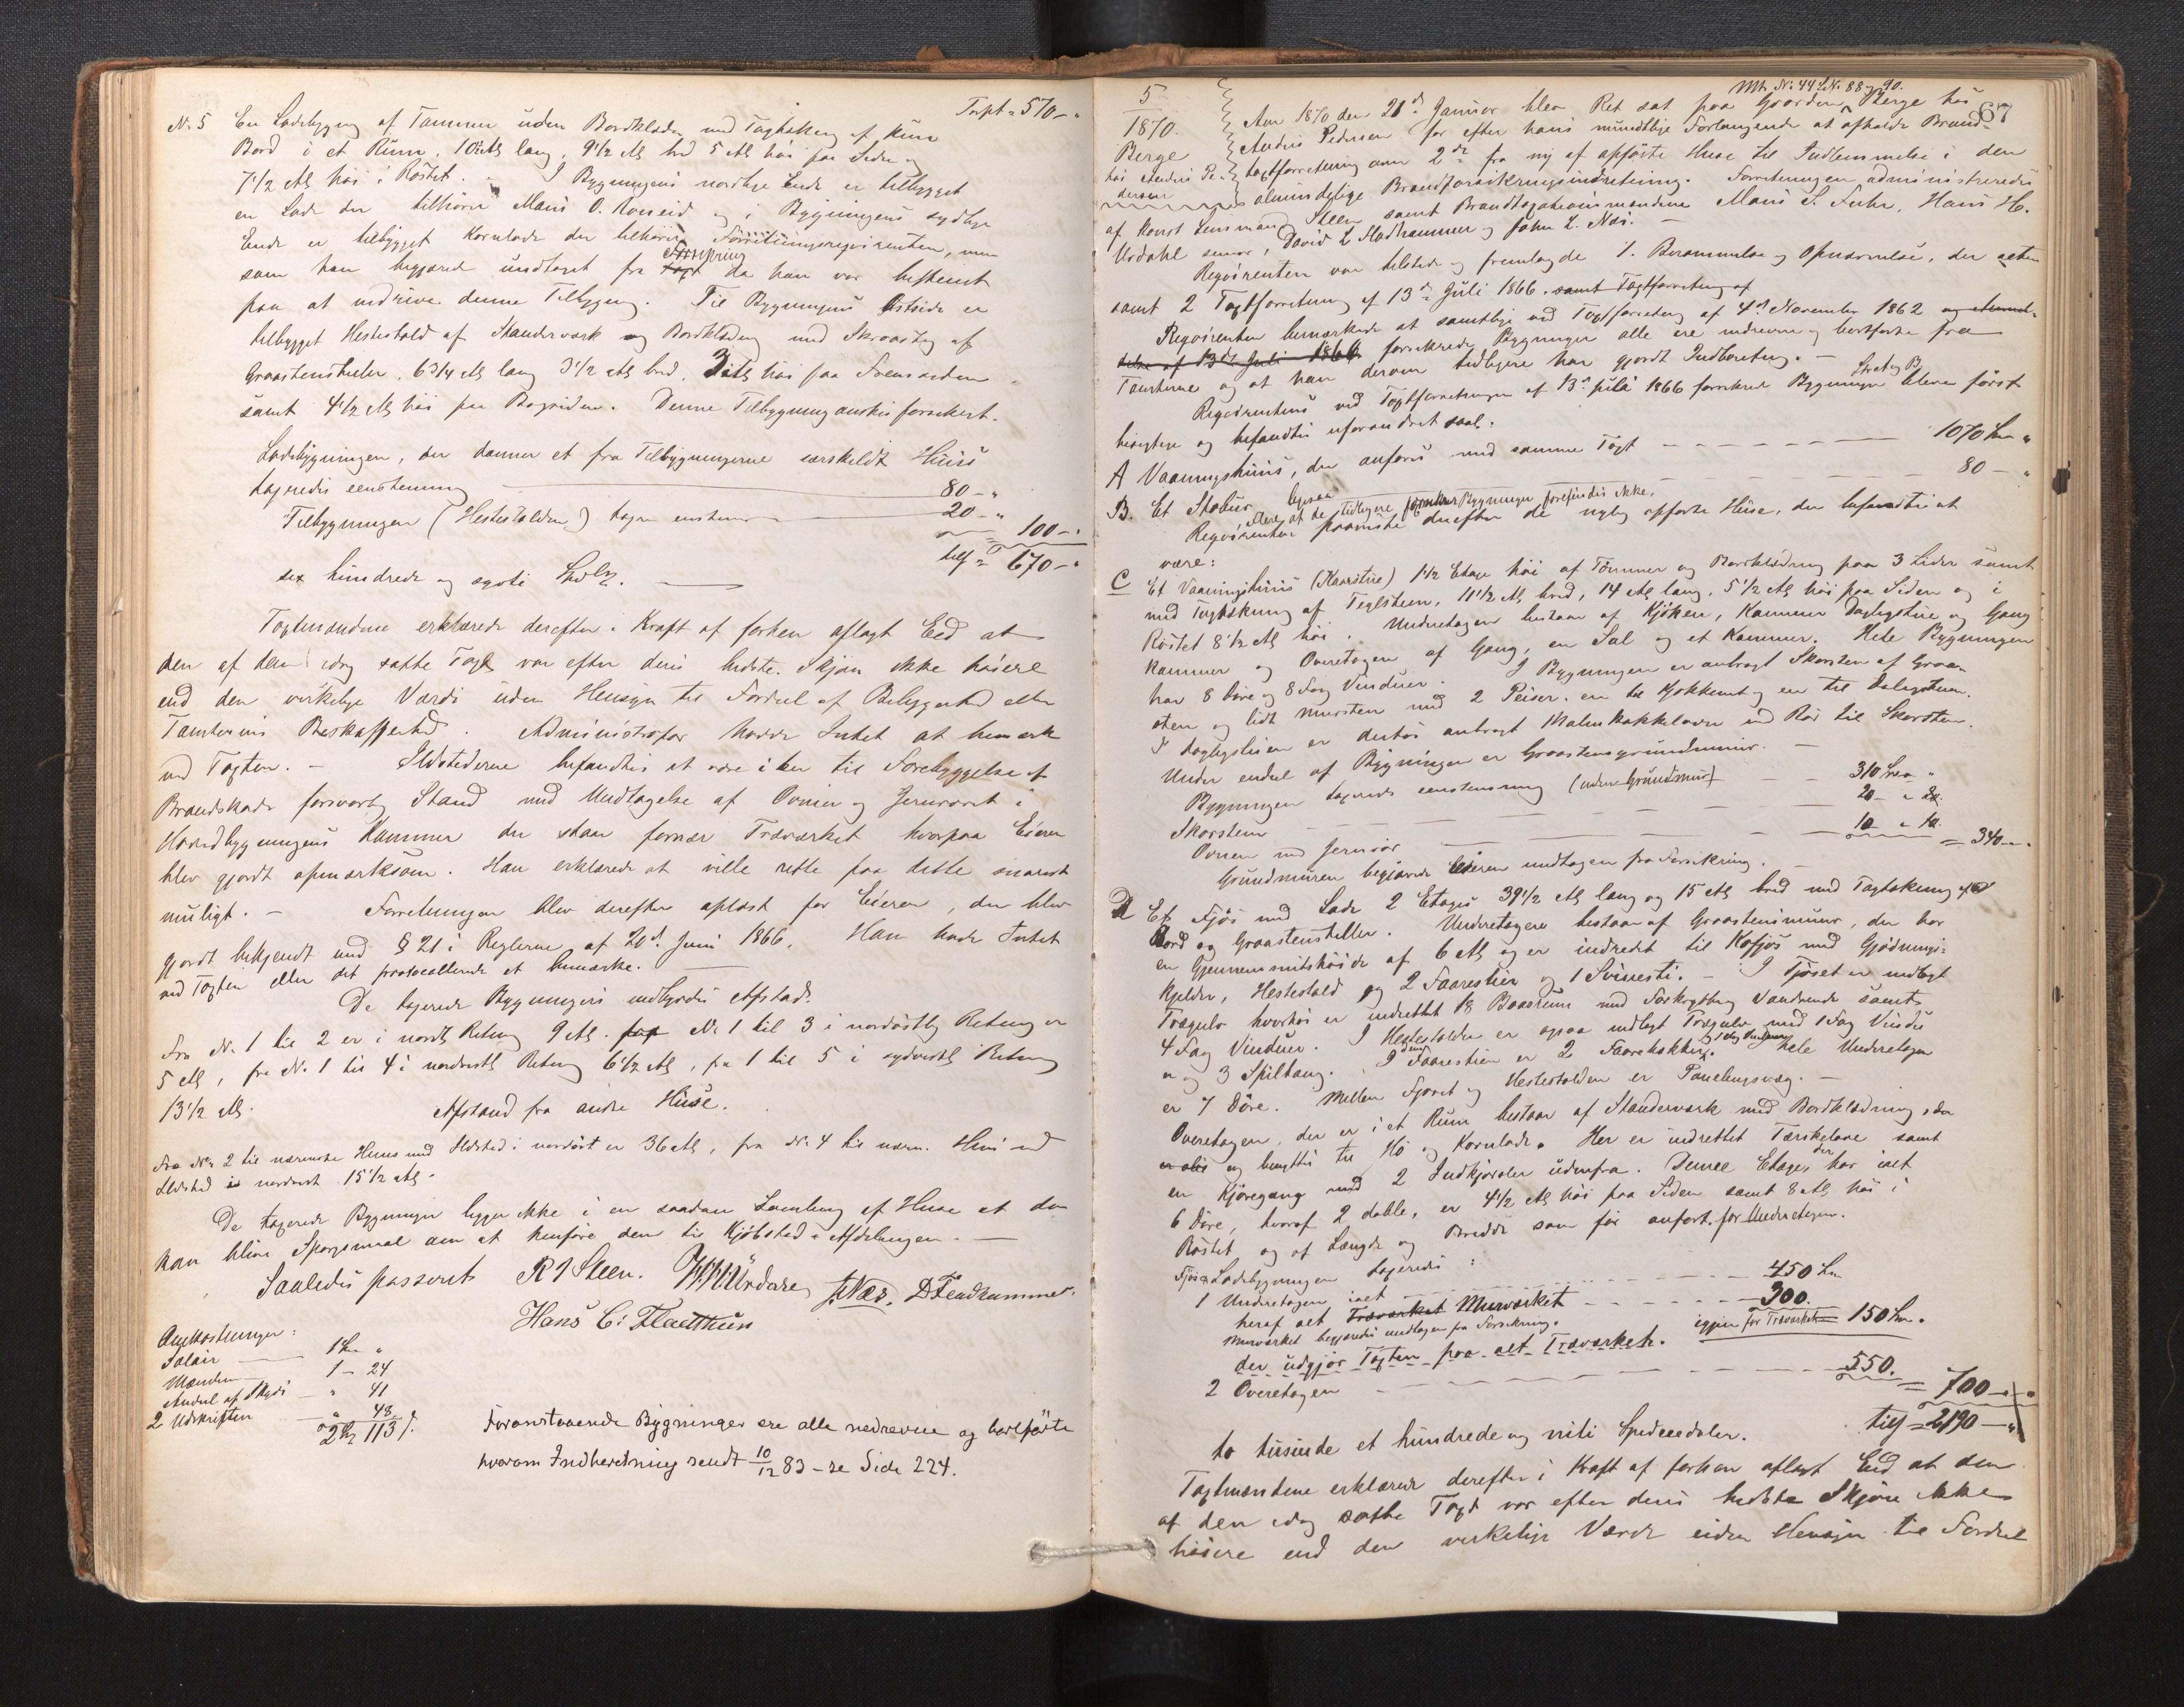 Trspt = 570 - "
No 5 En Ladebygning af Tømmer uden Bordklæding med Tagtækning af kun
Bord i et Rum, 10 Al. lang, 9 1/2 Al. bred 5 Al. høi paa Siden og
7 1/2 Al. høi i Røstet. - I Bygningens nordlige Ende er tilbygget
en Lade der tilhører Mons O. Roneid og i Bygningens sydlige
Ende er tilbygget Kornlade der tilhører Forretningsreqvirenten, men
som han begjærede undtaget fra Forsikring da han var bestemt
paa at nedrive denne Tilbygning. Til Bygningens Østside er
tilbygget Hestestald af Standerværk og Bordklæding med Skraatag af
Graastensheller, 6 3/4 Al. lang 3 1/2 Al. bred, 3 Al. høi paa Fremsiden
samt 4 1/2 Al. høi paa Bagsiden. Denne Tilbygning ønskes forsikret.
Ladebygningen, der danner et fra Tilbygningerne særskildt Huus
taxeredes eenstemmig 80 - "
Tilbygningen (Hestestalden) taxer enstem 20 - " = 100 - "
tils = 670 - "
sex hundrede og sytti Spdlr.
Taxtmændene erklærede derefter i Kraft af forhen aflagt Eed at
den af dem idag satte Taxt var efter deres bedste Skjøn ikke høiere
end den virkelige Værdi uden Hensyn til Fordeel af Beliggenhed eller
Tomternes Beskaffenhed. Administrator havde Intet at bemærke
ved Taxten. - Ildstederne befandtes at være i en til Forebyggelse af
Brandskade forsvarlig Stand med Undtagelse af Ovnen og Jernrøret i
Hovedbygningens Kammer der staar fornær Træværket hvorpaa Eieren
blev gjordt opmærksom. Han erklærede at ville rette paa dette snarest
muligt. - Forretningen blev derefter oplæst for Eieren, der blev
gjordt bekjendt med § 21 i Reglerne af 20de Juni 1866. Han havde Intet
ved Taxten eller det protocollerede at bemærke.
De taxerede Bygningers indbyrdes Afstad.
Fra No 1 til 2 er i nordl Retning 9 Al. fra No 1 til 3 i nordøstlig Retning er
5 Al, fra No. 1 til 4 i nordvestl Retning 6 1/2 Al, fra 1 til 5 i sydvestl Retning
13 1/2 Al.
Afstand fra andre Huse.
Fra No 2 til nærmeste Huus med Ildsted i nordøst er 36 Al, fra No. 4 til nærm. Huus med
Ildsted i nordvest 15 1/2 Al.
De taxerede Bygninger ligger ikke i en saadan Samling af Huse at der
kan blive Spørgsmaal om at henføre dem til Kjøbsted-Afdelingen.
Saaledes passeret R J Steen. HHUrdahl, JNæs, DFladhammer.
Hans C: Flaethun
Omkostninger:
Salair 1 Spd "
Mændene 1 - 24
Andel af Skyds - " 41
2 Udskrifter " 48
2 Spd 113 ß.
Foranstaaende Bygninger ere alle nedrevne og bortførte
hvorom Indberetning sendt 10/12 83 - se Side 224.
Mt. No. 44 L.No. 88 og 90.
67
5/1870.
Berge
hos Anders Pe-
dersen
Aar 1870 den 21de Januar blev Ret sat paa Gaarden Berge hos
Anders Pedersen for efter hans mundtlige Forlangende at afholde Brand-
taxtforretning over 2de fra ny af opførte Huse til Indlemmelse i den
almindelige Brandforsikringsindretning. Forretningen administreredes
af konst Lensmand Steen samt Brandtaxationsmændene Mons S. Fuhr, Hans H.
Urdahl senior, David L Fladhammer og John L. Næs.
Reqvirenten var tilstede og fremlagde 1. Berammelse og Opnævnelse, der
samt 2 Taxtforretning af 13de Juli 1866. samt Taxtforretning af
Reqvirenten bemærkede at samtlige ved Taxtforretning af 4de November 1862
af 13de Juli 1866 forsikrede Bygninger alle ere nedrevne og bortførte fra
Tomterne og at han derom tidligere har gjordt Indberetning. -
Reqvirentens ved Taxtforretningen af 13de Juli 1866 forsikrede Bygninger bleve først
besigtige og befandtes uforandret saal:
A Vaaningshuus, der anføres med samme Taxt 1070 Spd "
B. Et Stabur ligesaa 80 - "
Reqvirenten paaviste derefter de nylig opførte Huse, der befandtes at
være:
C Et Vaaningshuus (Kaarstue) 1 1/2 Etage høi af Tømmer og Bordklædning paa 3 Sider samt
med Tagtækning af Teglsteen, 11 1/2 Al. bred, 14 Al. lang, 5 1/2 Al. høi paa Siden og i
Røstet 8 1/2 Al. høi. Underetagen bestaar af Kjøken, Kammer Dagligstue og Gang
kammer og Overetagen af Gang, en Sal og et Kammer. Hele Bygningen
har 8 Døre og 8 Fag Vinduer. I Bygningen er anbragt Skorsten af Graa-
sten og lidt Mursten med 2 Peiser, en til Kjøkkenet og en til Daligstuen.
I Dagligstuen er desuden anbragt Malmkakkelovn med Rør til Skorsten.
Under endel af Bygningen er Graastensgrundmuur. -
Bygningen taxeredes eenstemmig (uden Grundmur) 310 Spd "
Skorsten 20 - "
Ovnen med Jernrør 10 - " = 340 - "
Grundmuren begjærede Eieren undtagen fra Forsikring.
D Et Fjøs med Lade 2 Etages 39 1/2 Al. lang og 15 Al. bred med Tagtækning af
Bord og Graastensheller. Underetagen bestaar af Graastensmuur, der har
en Gjennemsnitshøide af 6 Al. og er indredet til Kofjøs med Gjødnings-
kjelder, Hestestald og 2 Faarestier og 1 Svinesti. - I Fjøset er indlagt
Trægulv hvorhos er indrettet 18 Baasrum med Forkrybbe Vandrende samt
4 Fag Vinduer. I Hestestalden er ogsaa indlagt Trægulv med 1 Fag Vindu
og 3 Spiltaug. I Faarestien er 2 Faarekrakker. hele Underetagen
er 7 Døre. Mellem Fjøset og Hestestalden er Panelingsvæg. -
Overetagen, der er i et Rum bestaar af Standerværk med Bordklædning, den
og benyttes til Hø og Kornlade. Her er indrettet Tærskelave samt
en Kjøregang med 2 Indkjørseler udenfra. Denne Etage, der har ialt
6 Døre, hvoraf 2 doble, er 4 1/2 Al. høi paa Siden samt 8 Al. høi i
Røstet og af Længde og Bredde som før anført for Underetagen.
Fjøs & Ladebygningen taxeredes:
1 Underetagen ialt 450 Spd
heraf alt Træværket Murværket 300.
Murværket begjæredes undtagen fra Forsikring. igjen for Træværket 150 Spd.
der udgjør Taxten paa alt Træværket.
2 Overetagen 550. = 700 - "
tils = 2190 - "
to tusinde et hundrede og niti Speciedaler.
Taxtmændene erklærede derefter i Kraft af forhen aflagt Eed at den
af den idag satte Taxt var efter deres bedste Skjøn ikke
høiere end den virkelige Værdi uden Hensyn til Fordeel